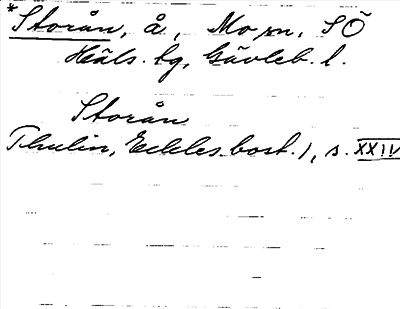 *Storån, å, Mo sn, SÖ
Häls. tg, Gävleb. l.
Storån
Thulin, Eckles. bost. 1, s. XXIV